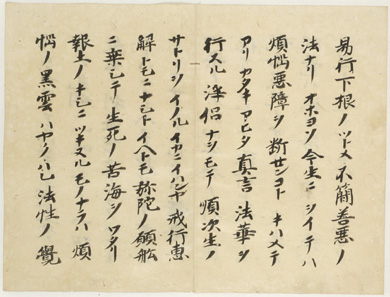 易行下根ノツトメ不簡善悪ノ
法ナリオホヨソ今生ニヲイテハ
煩悩悪障ヲ断センコトキハメテ
アリカタキアヒタ真言法華ヲ
行スル浄侶ナヲモテ順次生ノ
サトリヲイノルイカニイハンヤ戒行恵
解トモニナシトイヘトモ弥陀ノ願舩
ニ乗シテ生死ノ苦海ヲワタリ
報土ノキシニツキヌルモノナラハ煩
悩ノ黒雲ハヤクハレ法性ノ覺